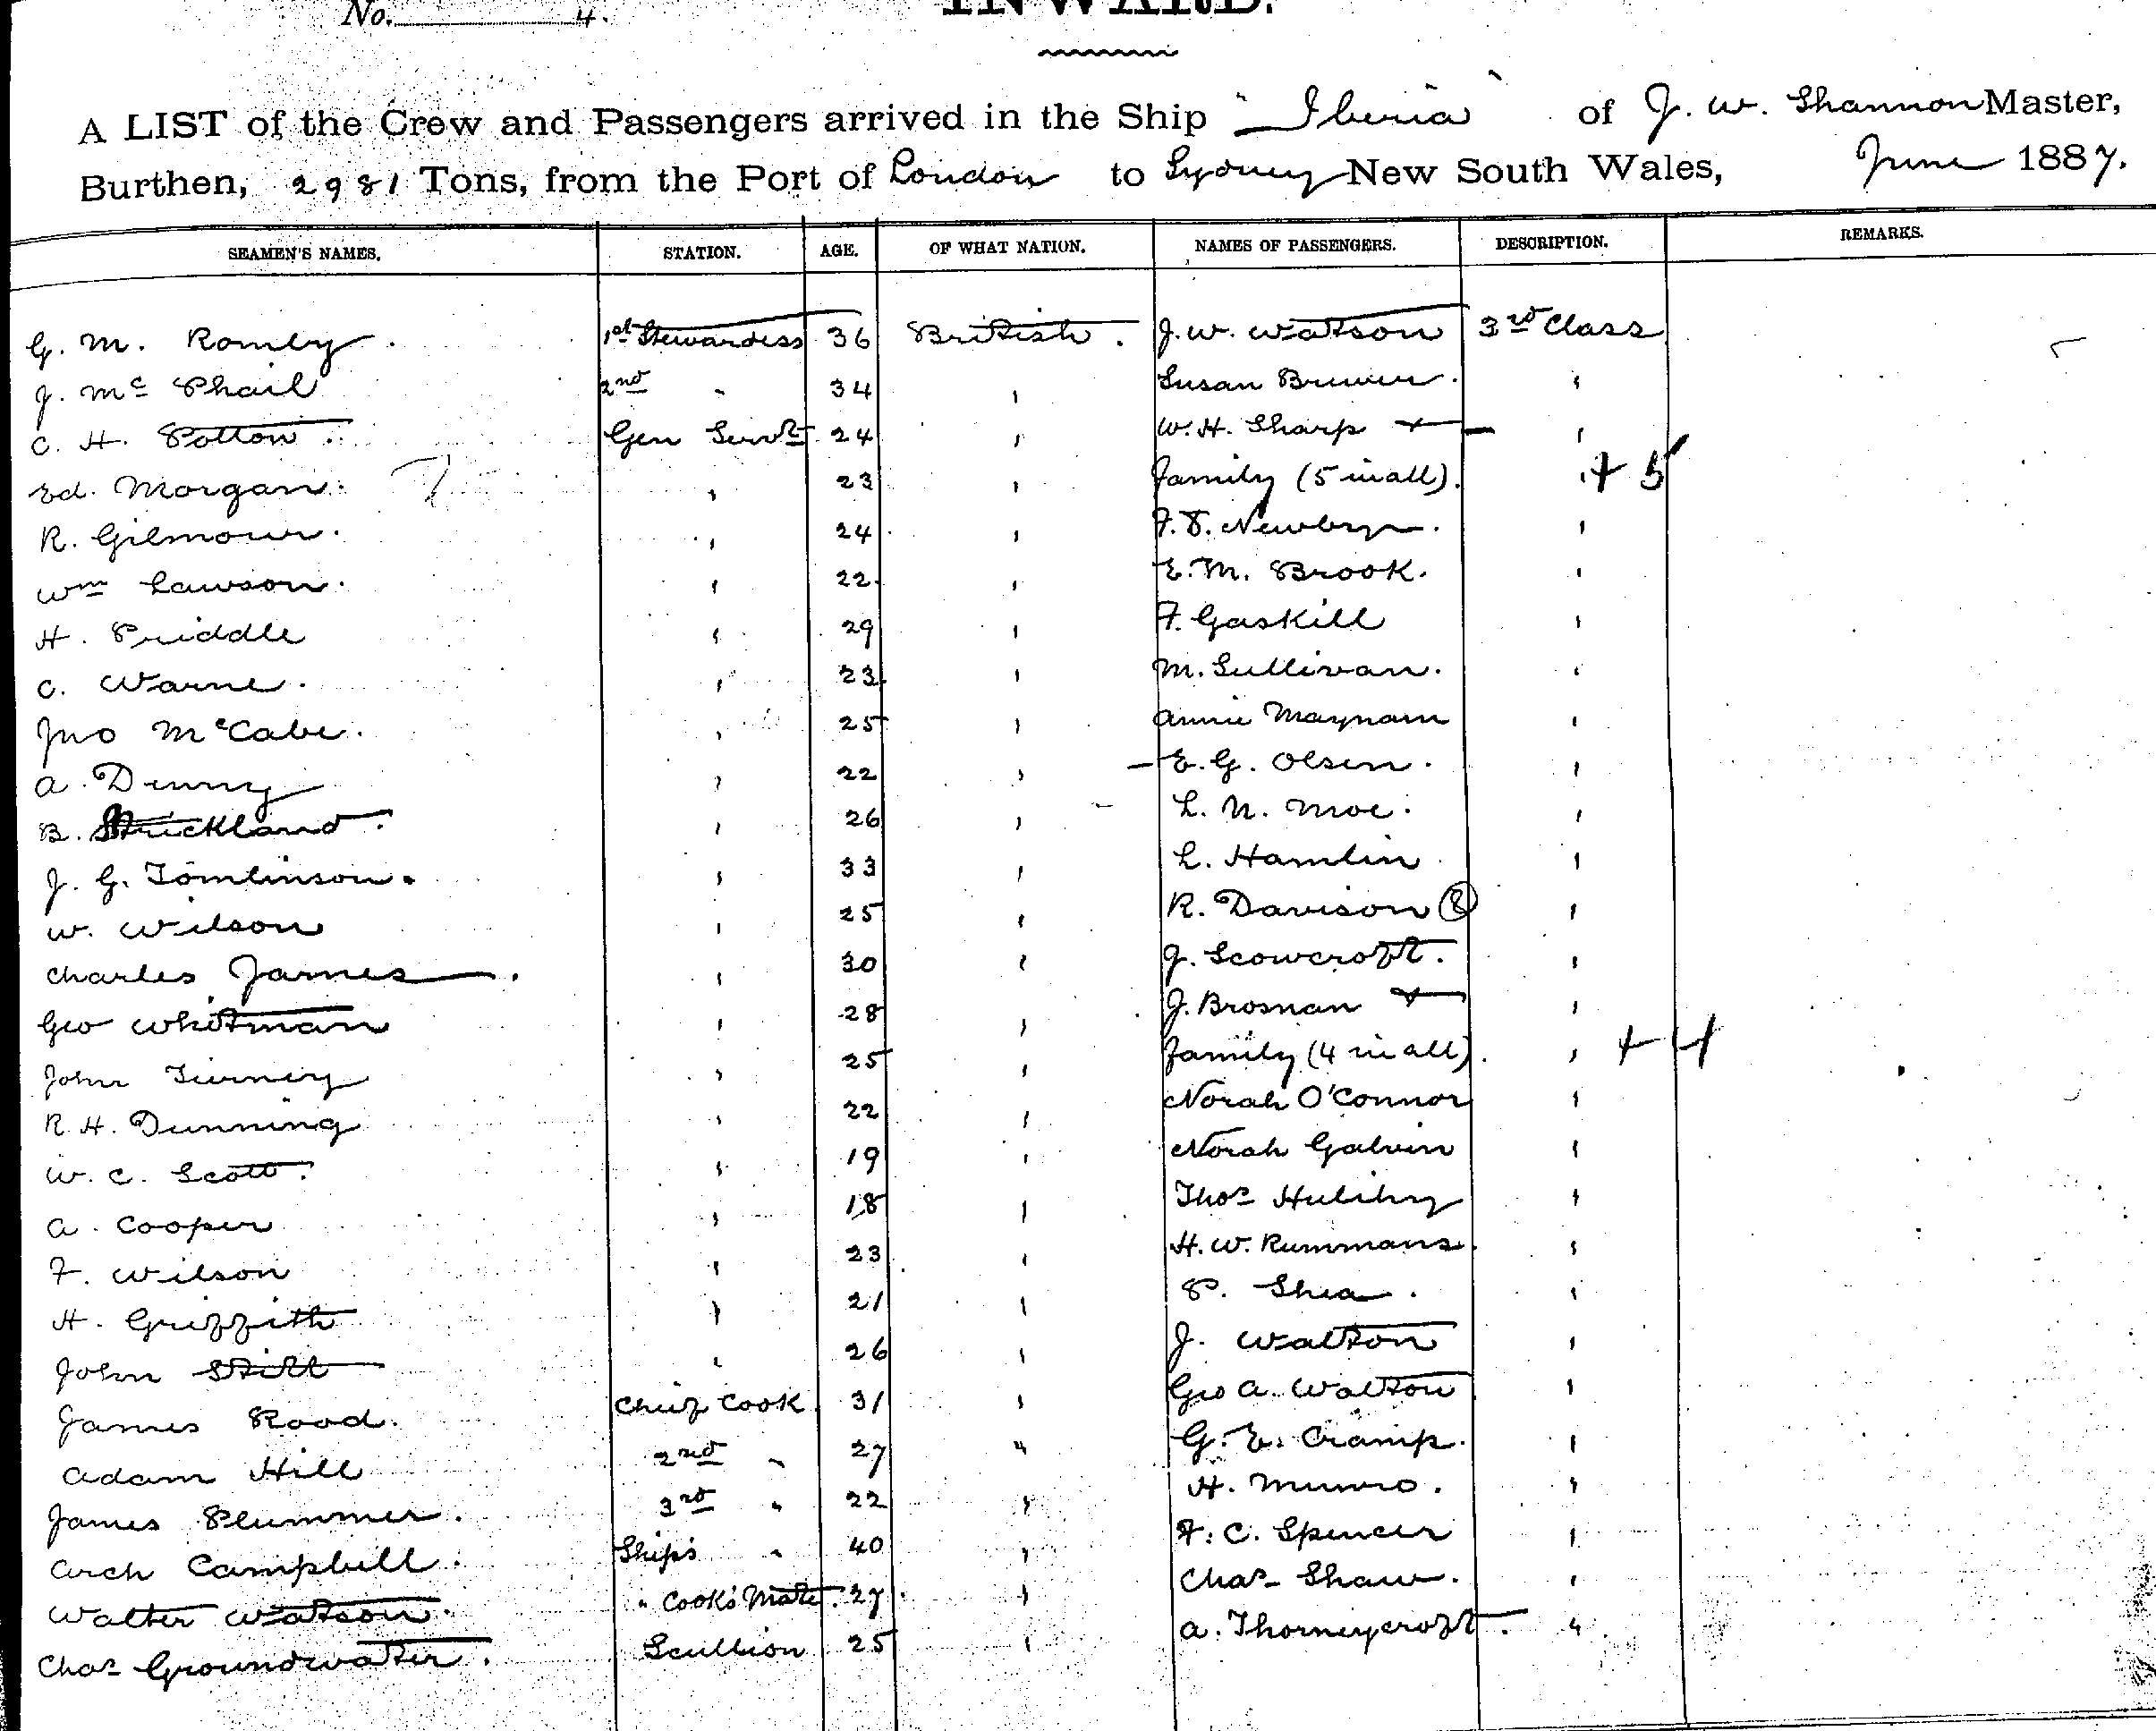 No. 4.
INWARD.
A LIST of the Crew and Passengers arrived in the Ship "Iberia" of J. W. Shannon Master,
Burthen, 2981 Tons, from the Port of London to Sydney New South Wales, June 1887.
SEAMEN'S NAMES. STATION. AGE. OF WHAT NATION. NAMES OF PASSENGERS. DESCRIPTION. REMARKS.
G. M. Romly 1st Stewardess 36 British. J. W. Watson 3rd Class
J. Mc Phail 2nd " 34 " Susan Brewer. "
C. H. Potton. Gen Servt 24 " W. H. Sharp + "
Ed. Morgan. " 23 " family (5 in all). " + 5
R. Gilmour. " 24 " F. T. Newbyn. "
Wm Lawson. " 22 " E. M. Brook. "
H. Priddle " 29 " F. Gaskill "
C. Warne. " 23 " M. Sullivan. "
Jno McCabe. " 25 " Annie Maynam "
A. Denny " 22 " E. G. Olsen. "
B. Strickland. " 26 " L. N. Moe. "
J. G. Tomlinson. " 33 " L. Hamlin "
W. Wilson " 25 " R. Davison "
Charles James. " 30 " J. Scowcroft. "
Geo Whitman " 28 " J. Brosnan + "
John Tierney " 25 " family (4 in all). " + 4
R. H. Dunning " 22 " Norah O'Connor "
W. C. Scott. " 19 " Norah Galvin "
A. Cooper " 18 " Thos "
F. Wilson " 23 " H. W. Rummans. "
H. Griffith " 21 " P. Shea. "
John Still " 26 " J. Walton "
James Rood. Chief Cook 31 " Geo A. Walton "
Adam Hill 2nd " 27 " G. E. Cramp. "
James Plummer. 3rd " 22 " H. Munro. "
Arch Campbell. Ship's " 40 " F. C. Spencer "
Walter Watson. " Cook's Mate. 27 " Chas Shaw. "
Chas Groundwater. Scullion 25 " A. Thorneycroft. "